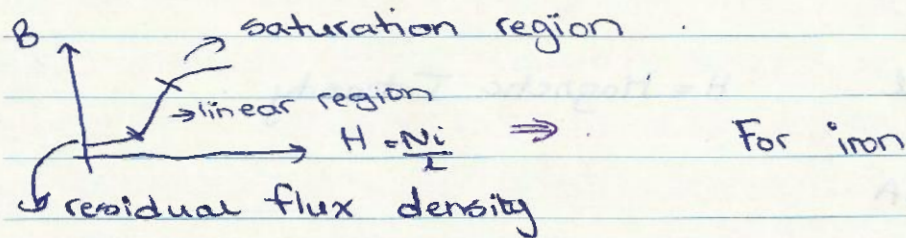 B saturation region
→linear region
H = Ni/l ⇒ For iron
residual flux density